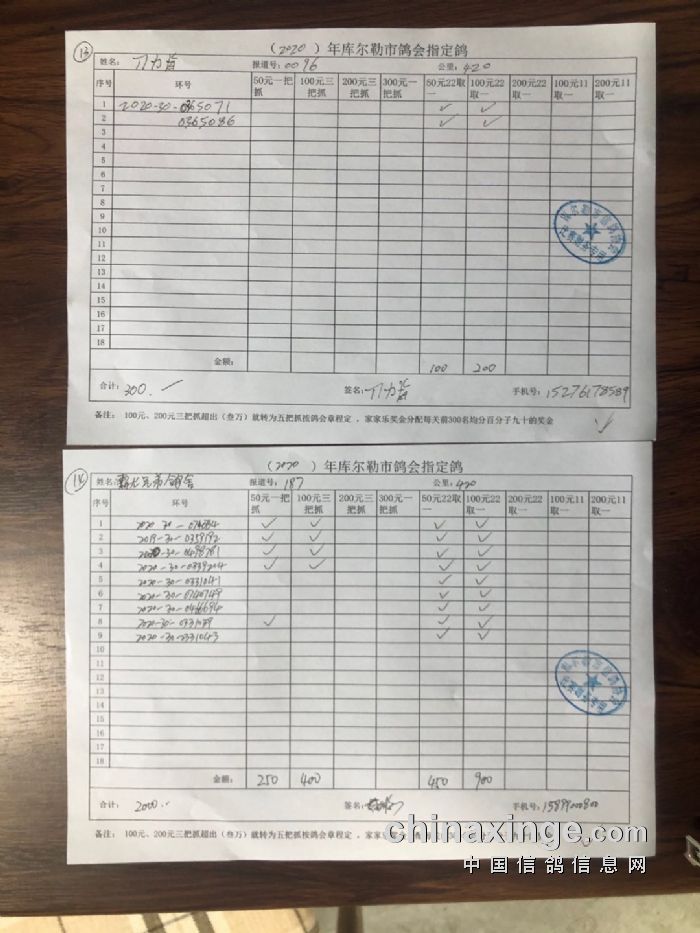 13
(2020)年库尔勒市鸽会指定鸽
姓名: 报道号:0096 公里:420
序号 环号 50元一把抓 100元三把抓 200元三把抓 300元一把抓 50元22取一 100元22取一 200元22取一 100元11取一 200元11取一
1 2020-30-0365071 ✓ ✓
2 0365086 ✓ ✓
3
4
5
6
7
8
9
10
11
12
13
14
15
16
17
18
金额: 100 200
合计: 300. 签名: 手机号: 15276178589
备注: 100元、200元三把抓超出(叁万)就转为五把抓按鸽会章程定,家家乐奖金分配每天前300名均分百分子九十的奖金
14
(2020)年库尔勒市鸽会指定鸽
姓名: 兄弟鸽舍 报道号:187 公里:420
序号 环号 50元一把抓 100元三把抓 200元三把抓 300元一把抓 50元22取一 100元22取一 200元22取一 100元11取一 200元11取一
1 2020-30- ✓ ✓ ✓ ✓
2 2019-30-0359192 ✓ ✓ ✓ ✓
3 2020-30-0498781 ✓ ✓ ✓ ✓
4 2020-30-0339204 ✓ ✓ ✓ ✓
5 2020-30-0331041 ✓ ✓
6 2020-30-0740749 ✓ ✓
7 2020-30-0466694 ✓ ✓
8 2020-30- ✓ ✓ ✓
9 2020-30-0331043 ✓ ✓
10
11
12
13
14
15
16
17
18
金额: 250 400 450 900
合计: 2000. 签名: 手机号: 15899000800
备注: 100元、200元三把抓超出(叁万)就转为五把抓按鸽会章程定,家家乐
chinaxinge.com
中国信鸽信息网